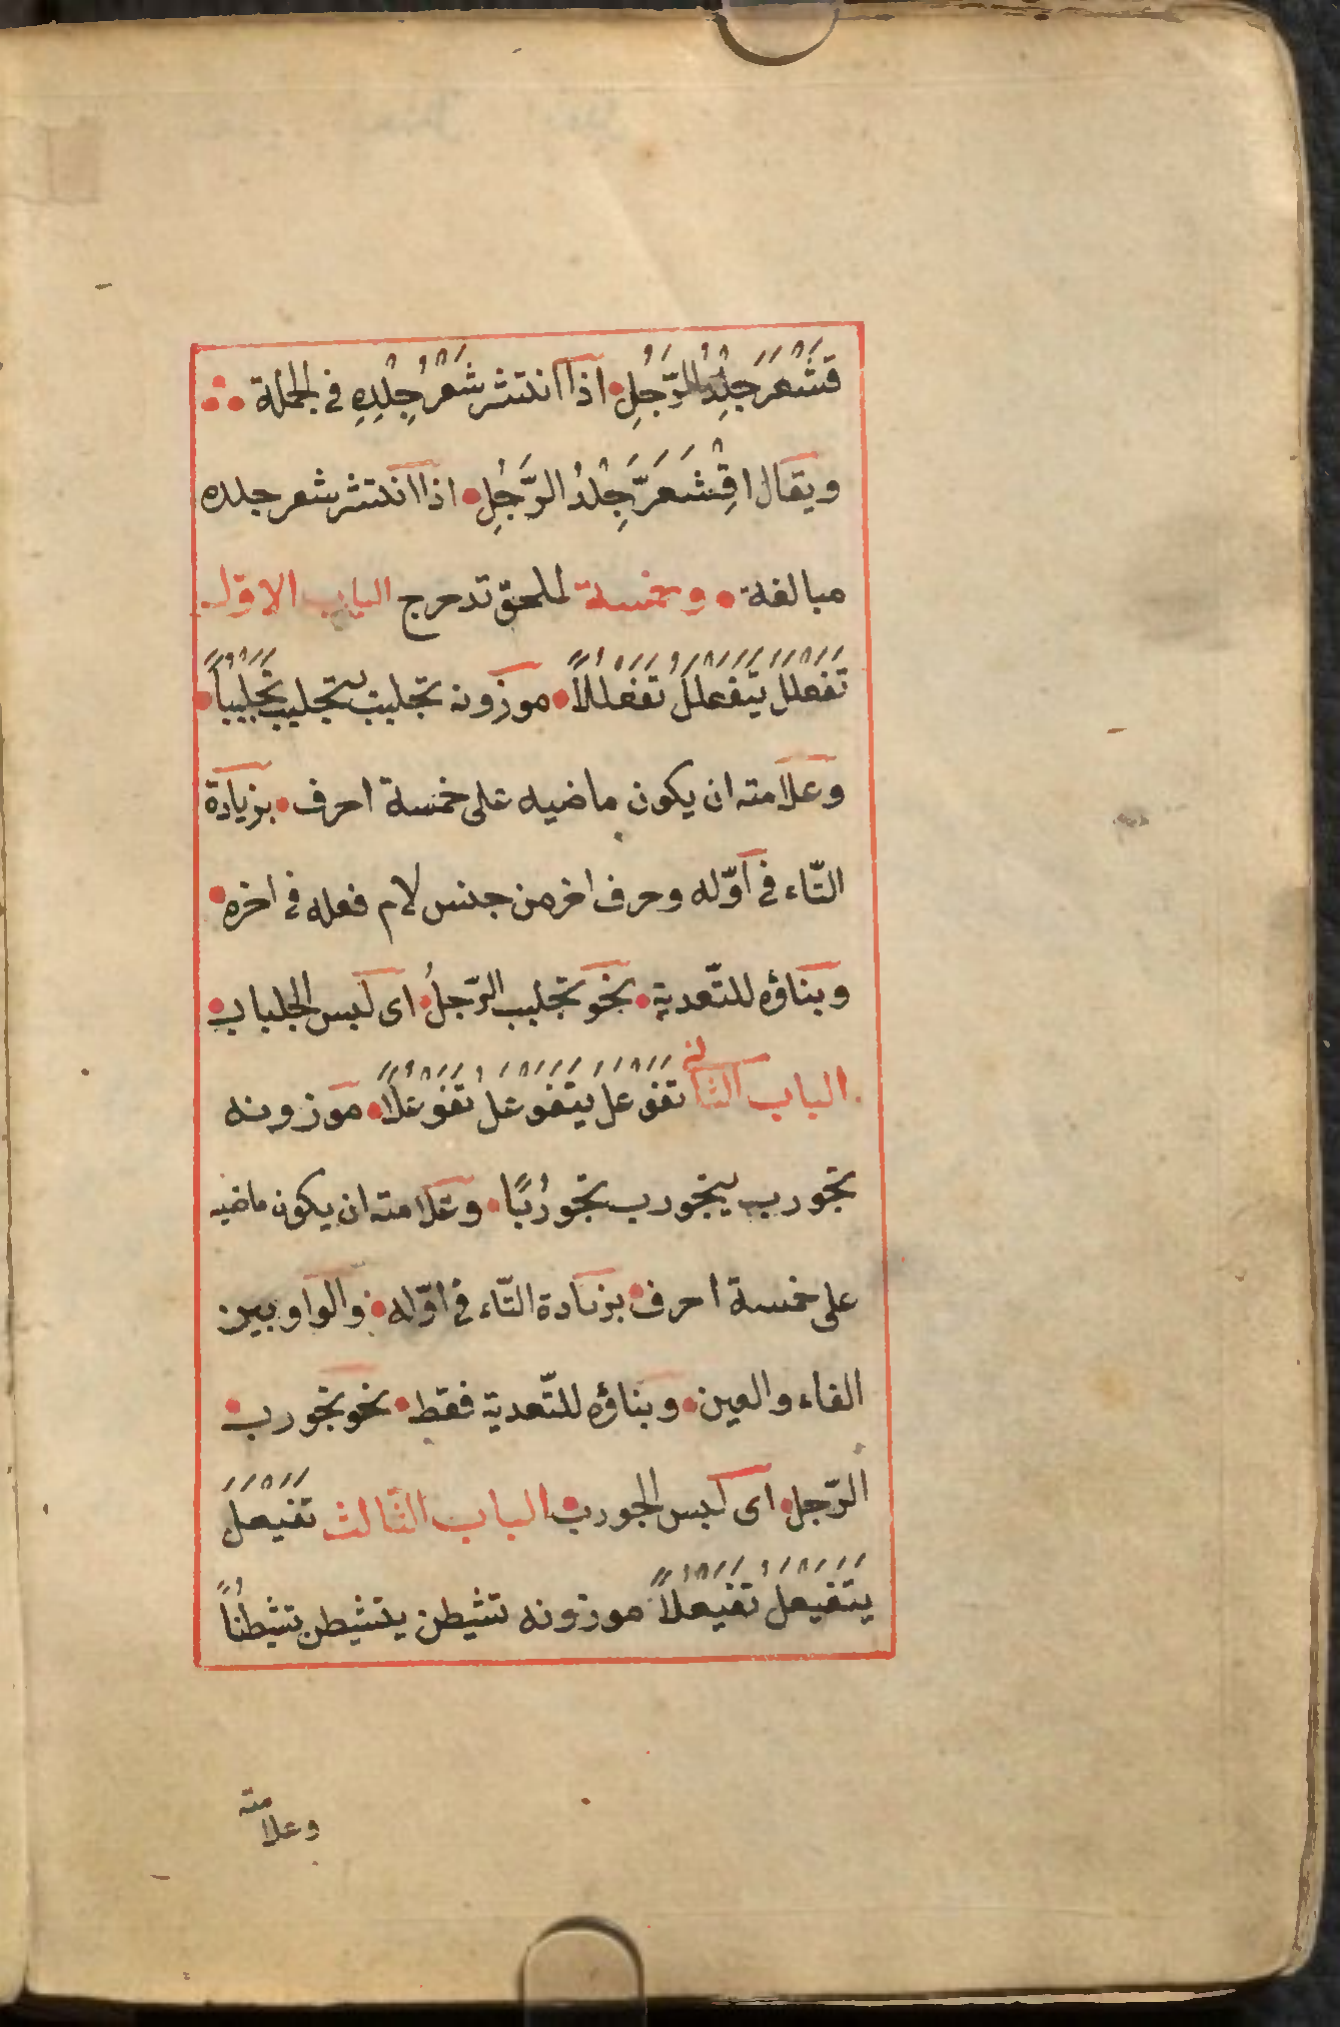 قَشْعَرَ جِلْدُ الرَّجُلِ اذا انتشر شَعْرُ جِلْدِهِ فى الجملة
ويقال اقْشَعَرَّ جِلْدُ الرَّجُلِ اذا انتشر شعر جلده
مبالغة وخمسة لملحق تدحرج الباب الاوّل
تَفَعْلَلَ يَتَفَعْلَلُ تَفَعْلُلاً موزونه تجلبب يتجلبب تجلبُباً
وعلامته ان يكون ماضيه على خمسة احرف بزيادة
التّاء فى اوّله وحرف اخر من جنس لام فعله فى اخره
وبناؤه للتّعدية نحو تجلبب الرّجلُ اى لبس الجلباب
الباب الثانى تَفَوْعَلَ يَتَفَوْعَلُ تَفَوْعُلاً موزونه
تجورب يتجورب تجورُبًا وعلامته ان يكون ماضيه
على خمسة احرف بزيادة التّاء فى اوّله والواو بين
الفاء والعين وبناؤه للتّعدية فقط نحو تجورب
الرّجل اى لبس الجورب الباب الثّالث تَفَيْعَلَ
يَتَفَيْعَلُ تَفَيْعُلاً موزونه تشيطن يتشيطن تشيطُناً
وعلامته